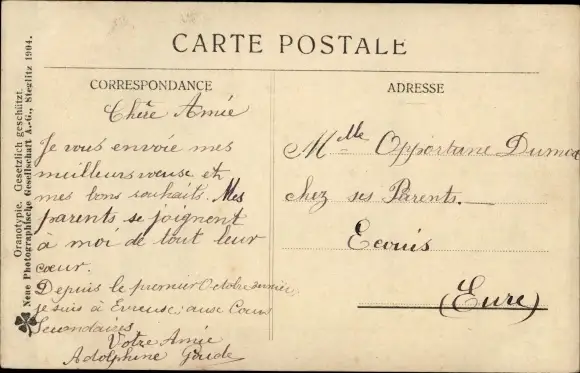 CARTE POSTALE
CORRESPONDANCE
Chère Amie
Je vous envoie mes
meilleurs voeuse et
mes bons souhaits. Mes
parents se joignent
à moi de tout leur
coeur.
Depuis le premier Octobre
je suis à Evreuse; ause Cours
Secondaires
Votre Amie
Adolphine
ADRESSE
Mlle Opportune
chez ses Parents.
Ecouis
(Eure)
Oranotypie. Gesetzlich geschützt.
Neue Photographische Gesellschaft A.-G., Steglitz 1904.